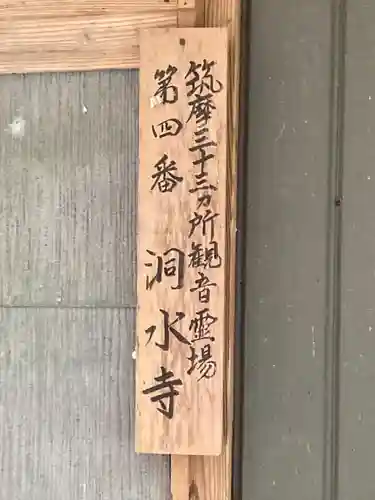 筑摩三十三ヵ所観音霊場
第四番 洞水寺